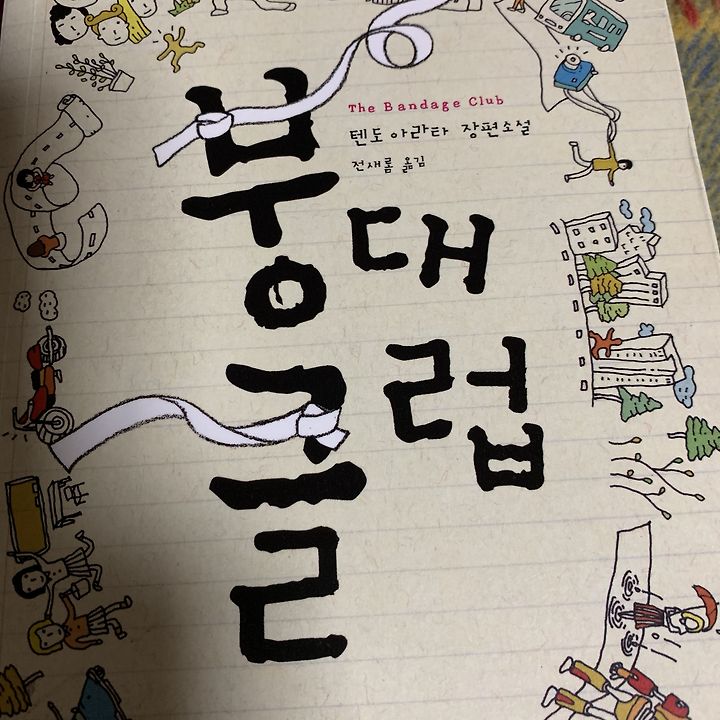 The Bandage Club
텐도 아라타 장편소설
전새롬 옮김
붕대
클럽